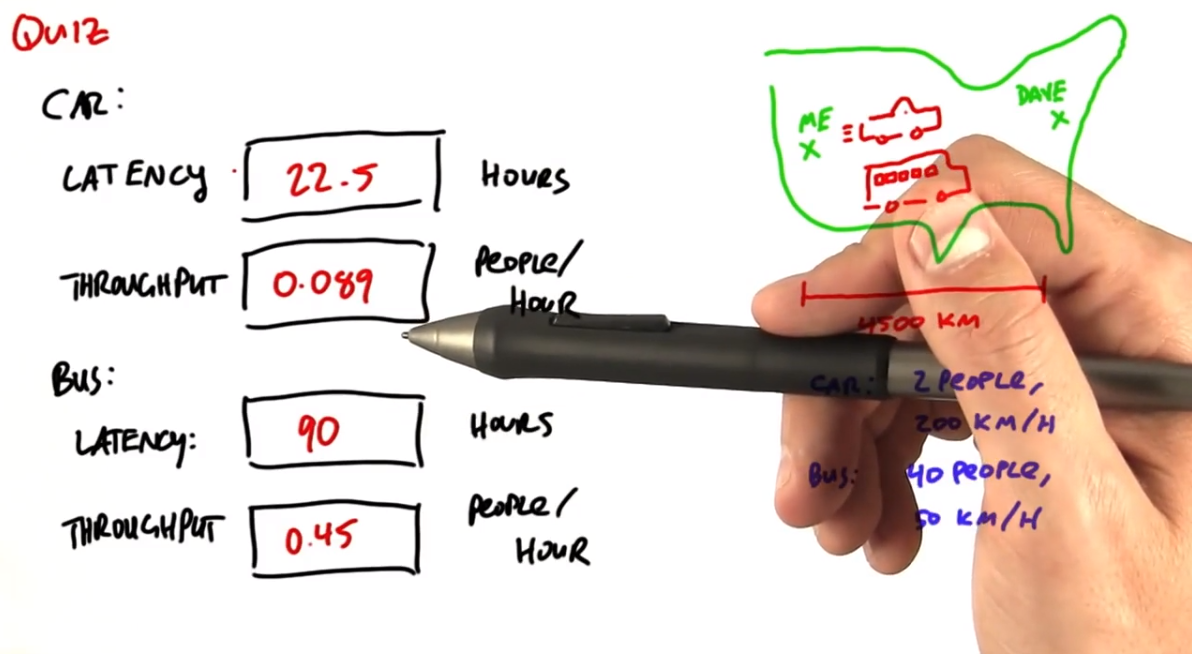 QUIZ
CAR:
LATENCY 22.5 HOURS
THROUGHPUT 0.089 PEOPLE/
HOUR
BUS:
LATENCY: 90 HOURS
THROUGHPUT 0.45 PEOPLE/
HOUR
ME
X
DAVE
X
4500 KM
CAR: 2 PEOPLE,
200 KM/H
BUS: 40 PEOPLE,
50 KM/H